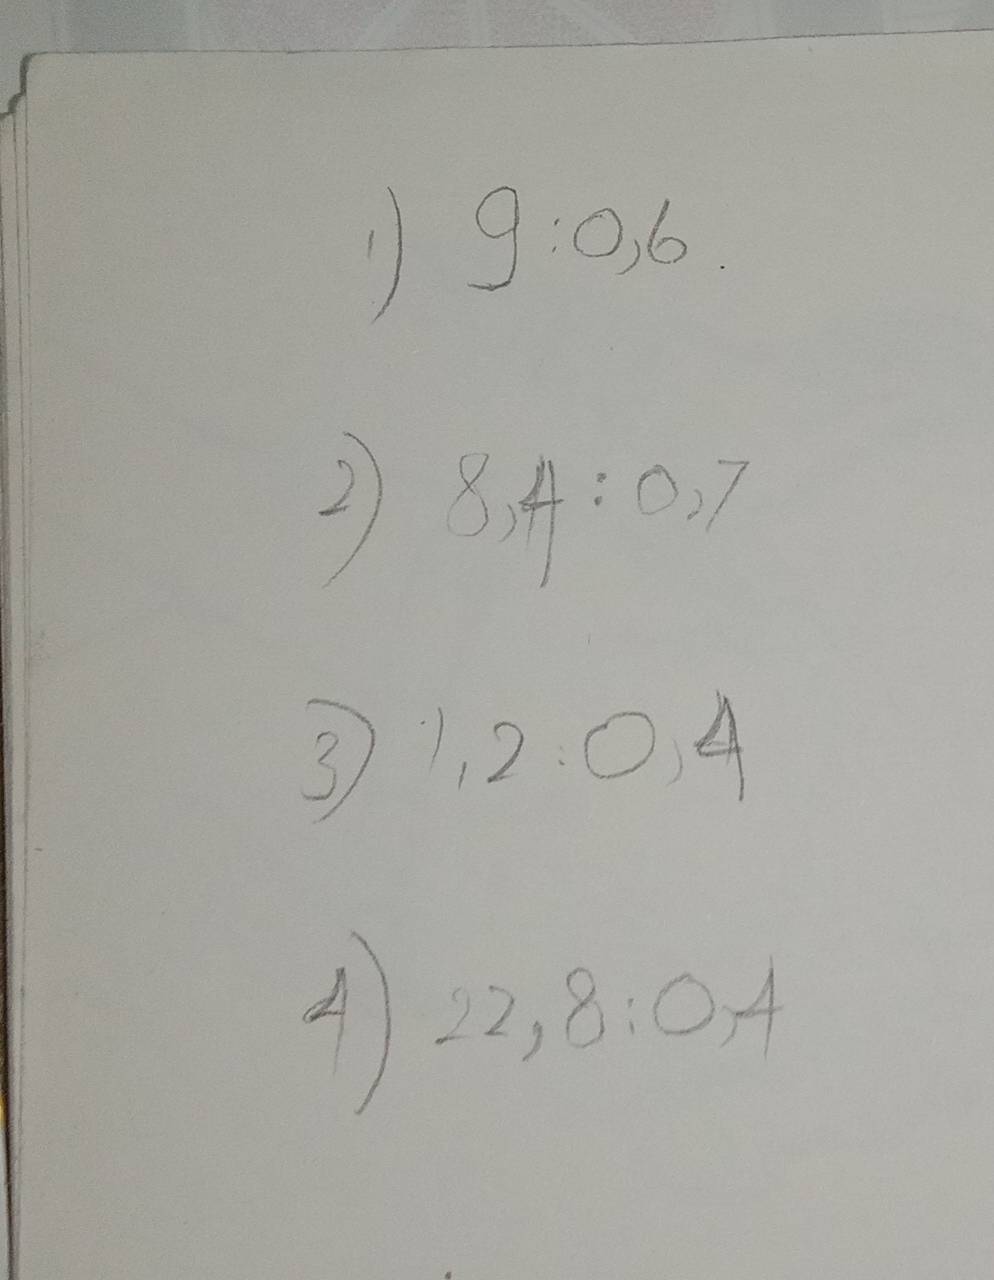 1) 9:0,6.
2) 8,4:0,7
3) 1,2:0,4
4) 22,8:0,4